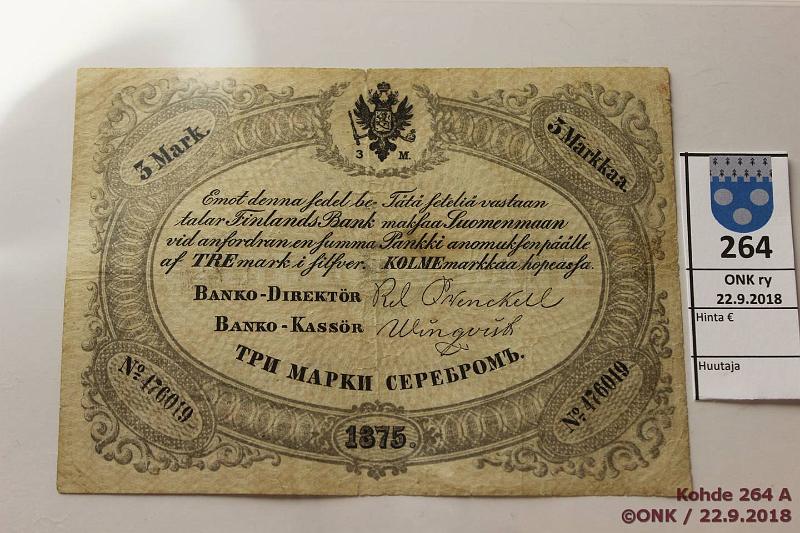 3 Mark.
3 Markkaa.
3 M.
Emot denna sedel be- Tätä seteliä vastaan
talar Finlands Bank maksaa Suomenmaan
vid anfordran en summa Pankki anomuksen päälle
af TRE mark i silfver. KOLME markkaa hopeassa.
BANKO-DIREKTÖR
BANKO-KASSÖR Winqvist
ТРИ МАРКИ СЕРЕБРОМЪ.
No. 476019
No. 476019
1875.
264
ONK ry
22.9.2018
Hinta €
Huutaja
Kohde 264 A
©ONK / 22.9.2018